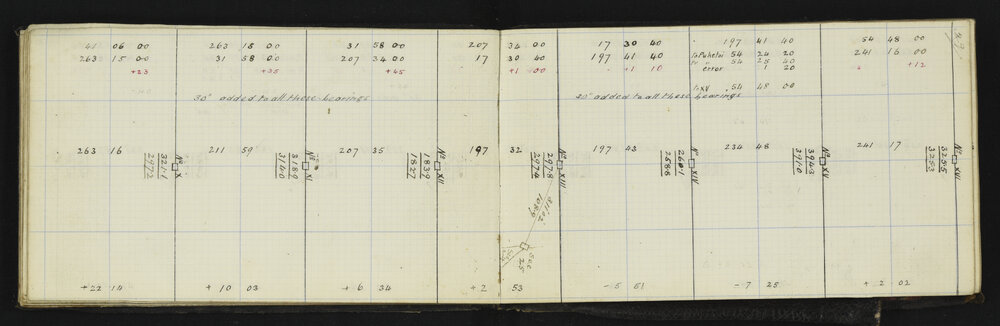 41 06 00 263 15 00 31 58 00 207 34 00 17 30 40 197 41 40 54 48 00
263 15 00 31 58 00 207 34 00 17 30 40 197 41 40 To Puketoi 54 24 20 241 16 00
+23 +35 +45 +1 00 +1 10 To " 54 25 40 +12
error 1 20
To XV 54 48 00
30" added to all these bearings 30" added to all these bearings
263 16 211 59 207 35 197 32 197 43 234 48 241 17
No X
321.1
297.2
No XI
318.9
31
No XII
183.9
182.7
No XIII
297.8
297.4
No XIV
260.1
258.8
No XV
394.3
391.0
No XVI
325.5
325.3
311 02
108.9
See
25
+22 14 +10 03 +6 34 +2 53 -5 51 -7 25 +2 02